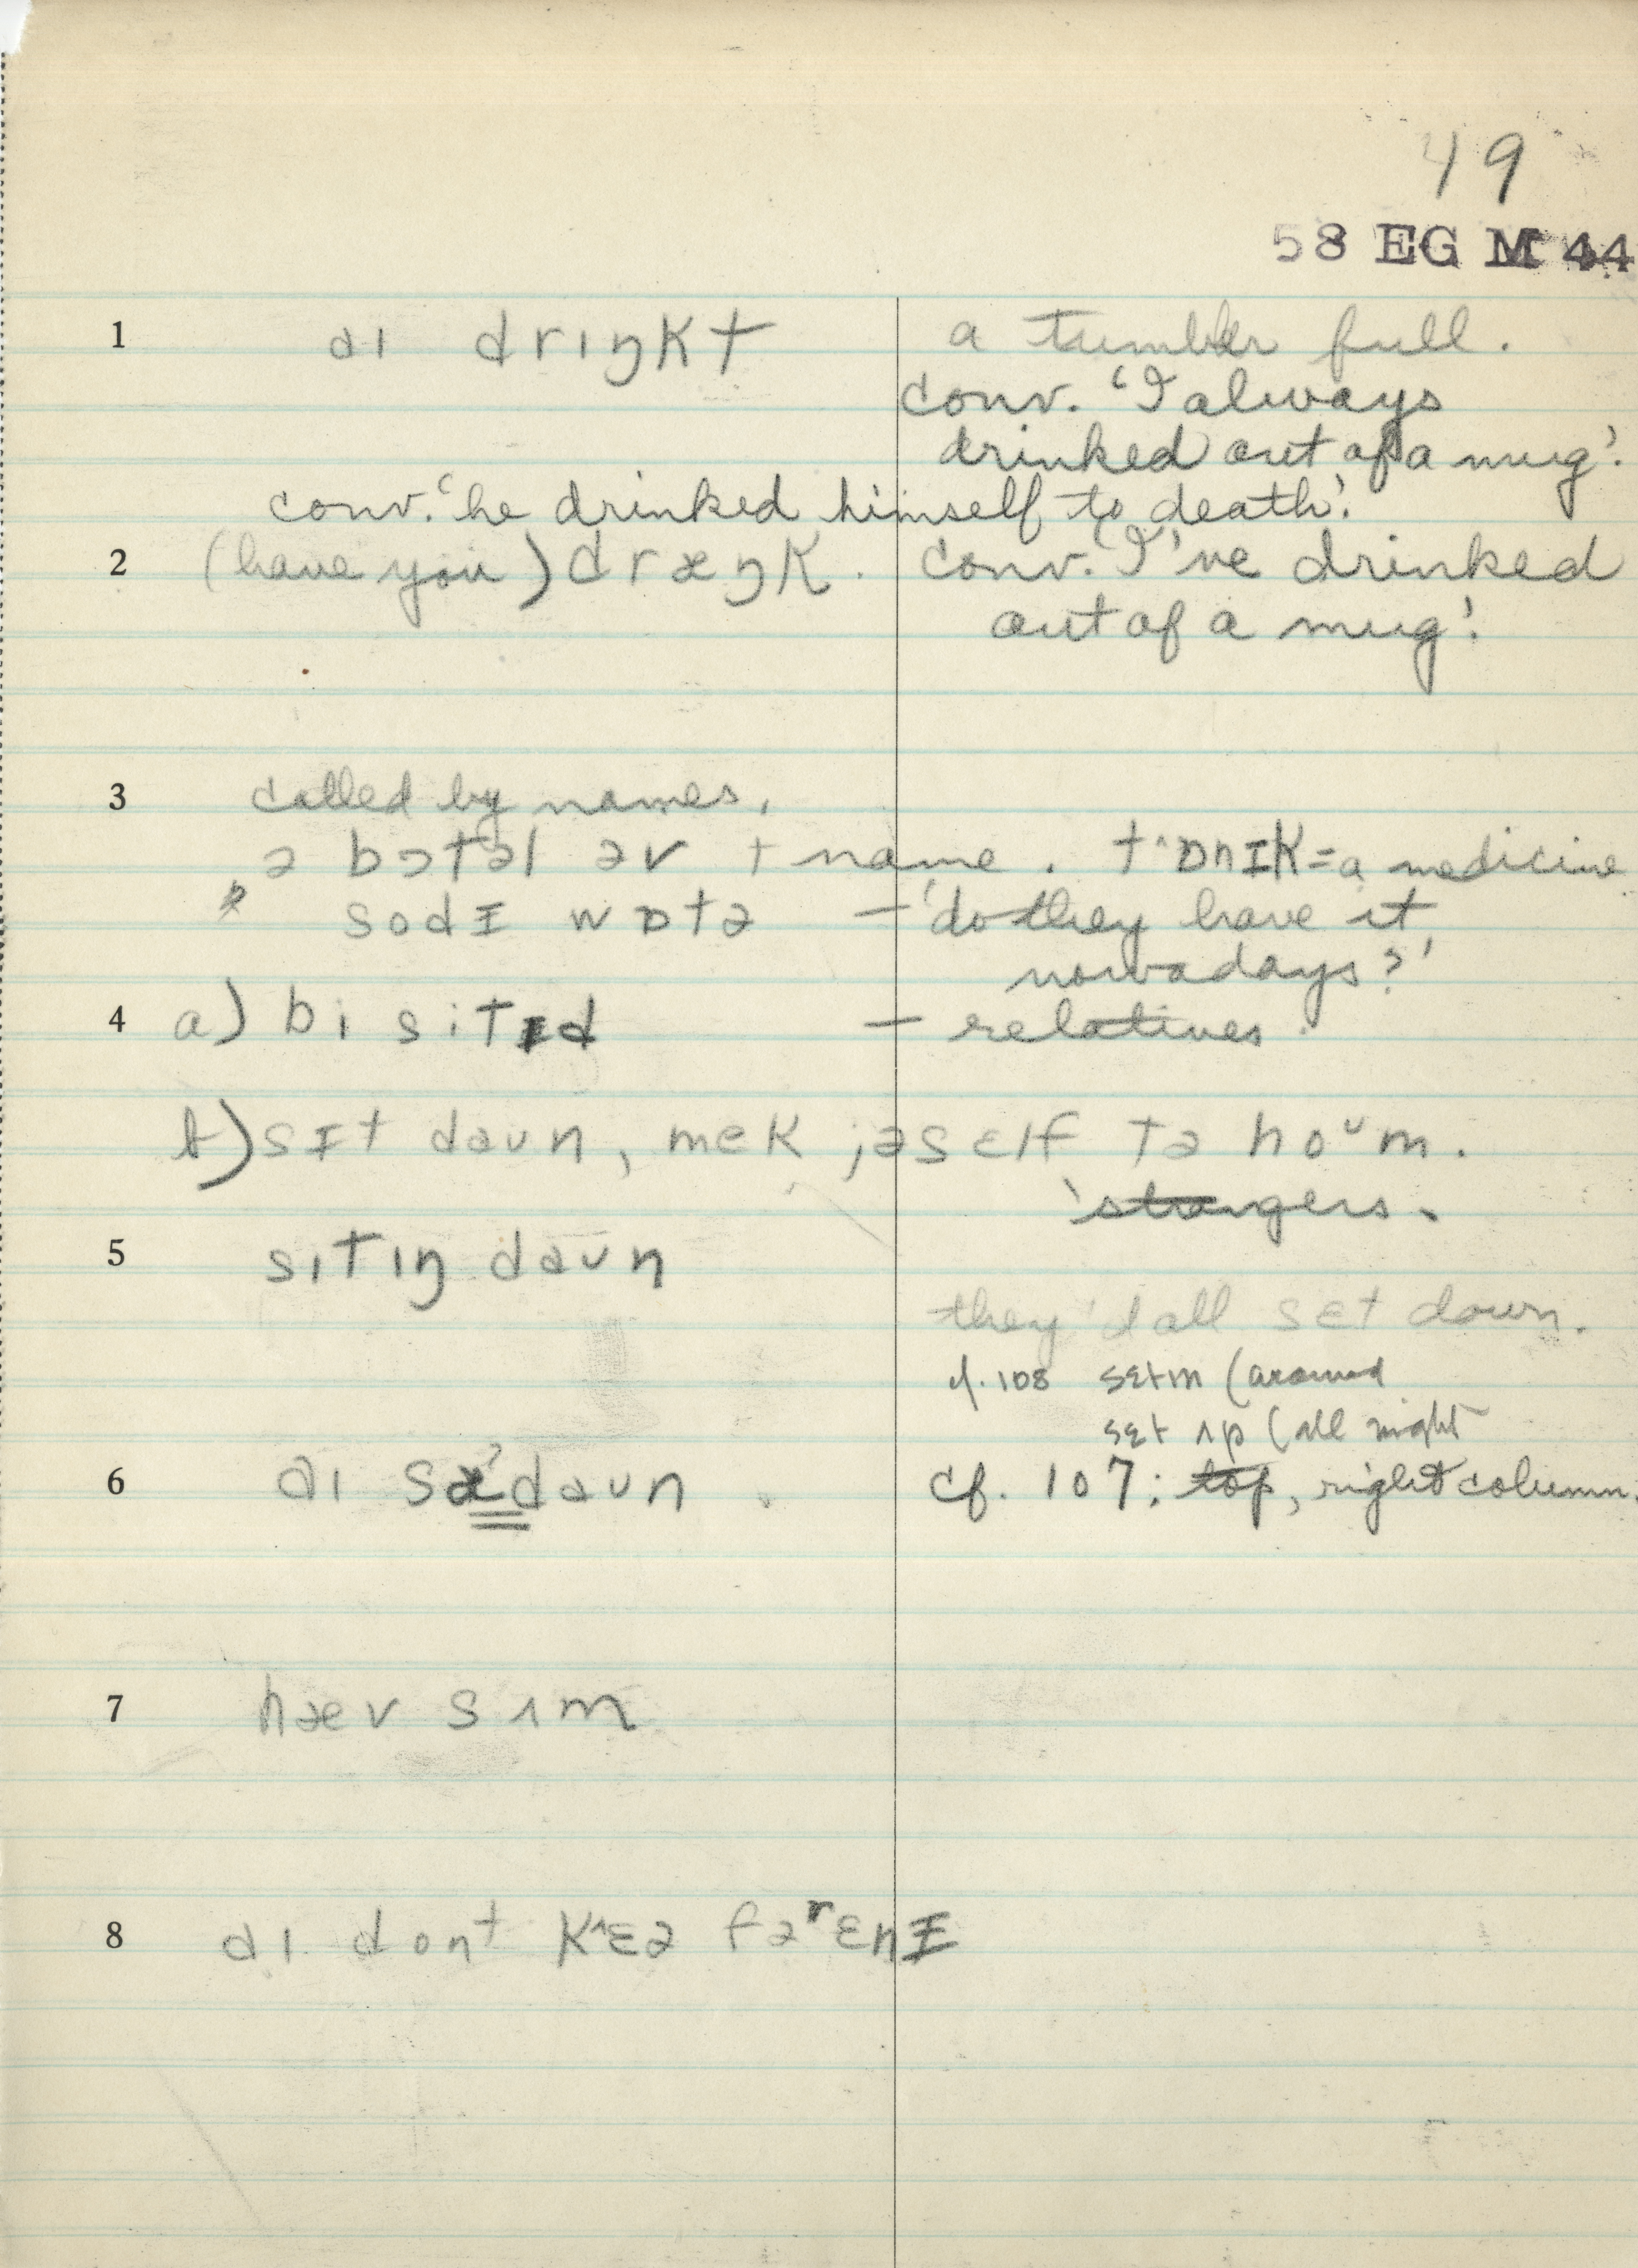 49
58 EG M 44
1 aɪ drɪŋkt a tumbler full.
conv. 'I always
drinked out of a mug'.
conv. 'he drinked himself to death'.
2 (have you) dræŋk. conv. 'I've drinked
out of a mug'.
3 called by names,
ə bɔtəl əv + name. t^ɒnɪk = a medicine
sodɪ wɒtə — 'do they have it
nowadays?'
4 a) bi sitɪd — relatives.
b) sɪt daun, mek jəsɛlf tə hoᵘm.
'strangers.
5 sitɪŋ daun
they'd all sɛt down.
cf. 108 sɛtɪn (around
sɛt ʌp (all night
6 aɪ sæʔdaun. cf. 107; top, right column.
7 hæv sʌm
8 aɪ dont k^ɛə fəʳɛnɪ